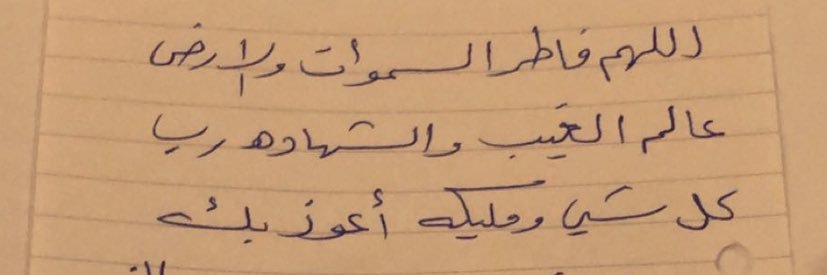 اللهم فاطر السموات والارض
عالم الغيب والشهاده رب
كل شي ومليكه أعوذ بك